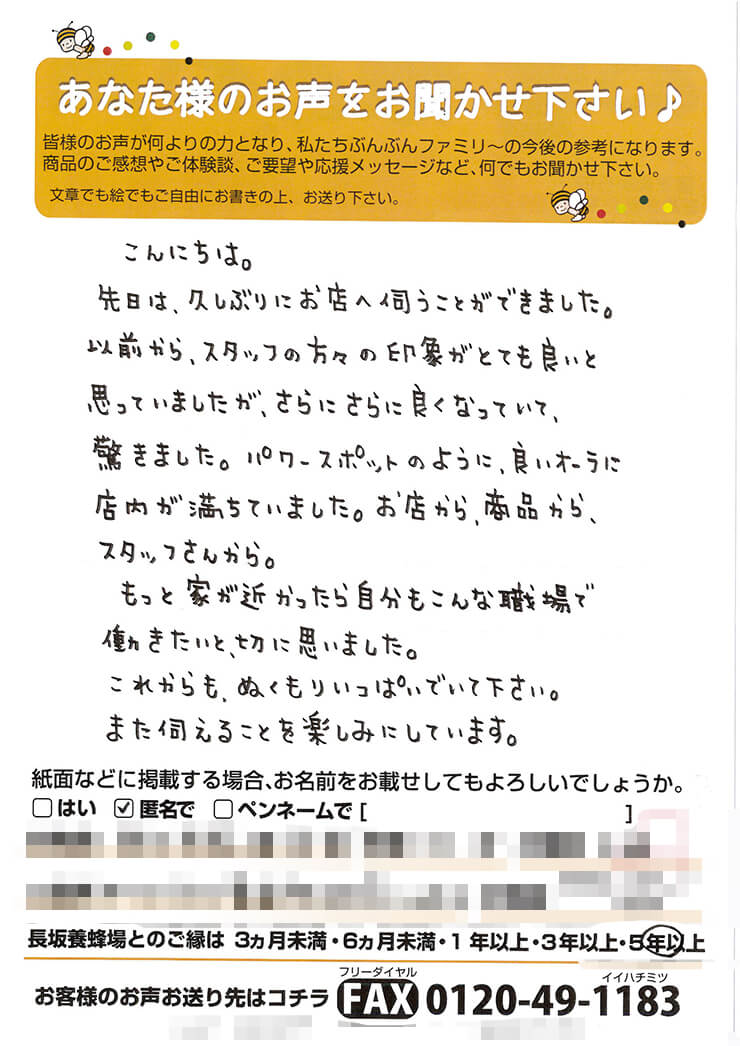 あなた様のお声をお聞かせ下さい♪
皆様のお声が何よりの力となり、私たちぶんぶんファミリ〜の今後の参考になります。
商品のご感想やご体験談、ご要望や応援メッセージなど、何でもお聞かせ下さい。
文章でも絵でもご自由にお書きの上、お送り下さい。
こんにちは。
先日は、久しぶりにお店へ伺うことができました。
以前から、スタッフの方々の印象がとても良いと
思っていましたが、さらにさらに良くなっていて、
驚きました。パワースポットのように、良いオーラに
店内が満ちていました。お店から、商品から、
スタッフさんから。
もっと家が近かったら自分もこんな職場で
働きたいと、切に思いました。
これからも、ぬくもりいっぱいでいて下さい。
また伺えることを楽しみにしています。
紙面などに掲載する場合、お名前をお載せしてもよろしいでしょうか。
□はい ☑匿名で □ペンネームで [ ]
長坂養蜂場とのご縁は 3ヵ月未満・6ヵ月未満・1年以上・3年以上・5年以上
フリーダイヤル イイハチミツ
お客様のお声お送り先はコチラ FAX 0120-49-1183